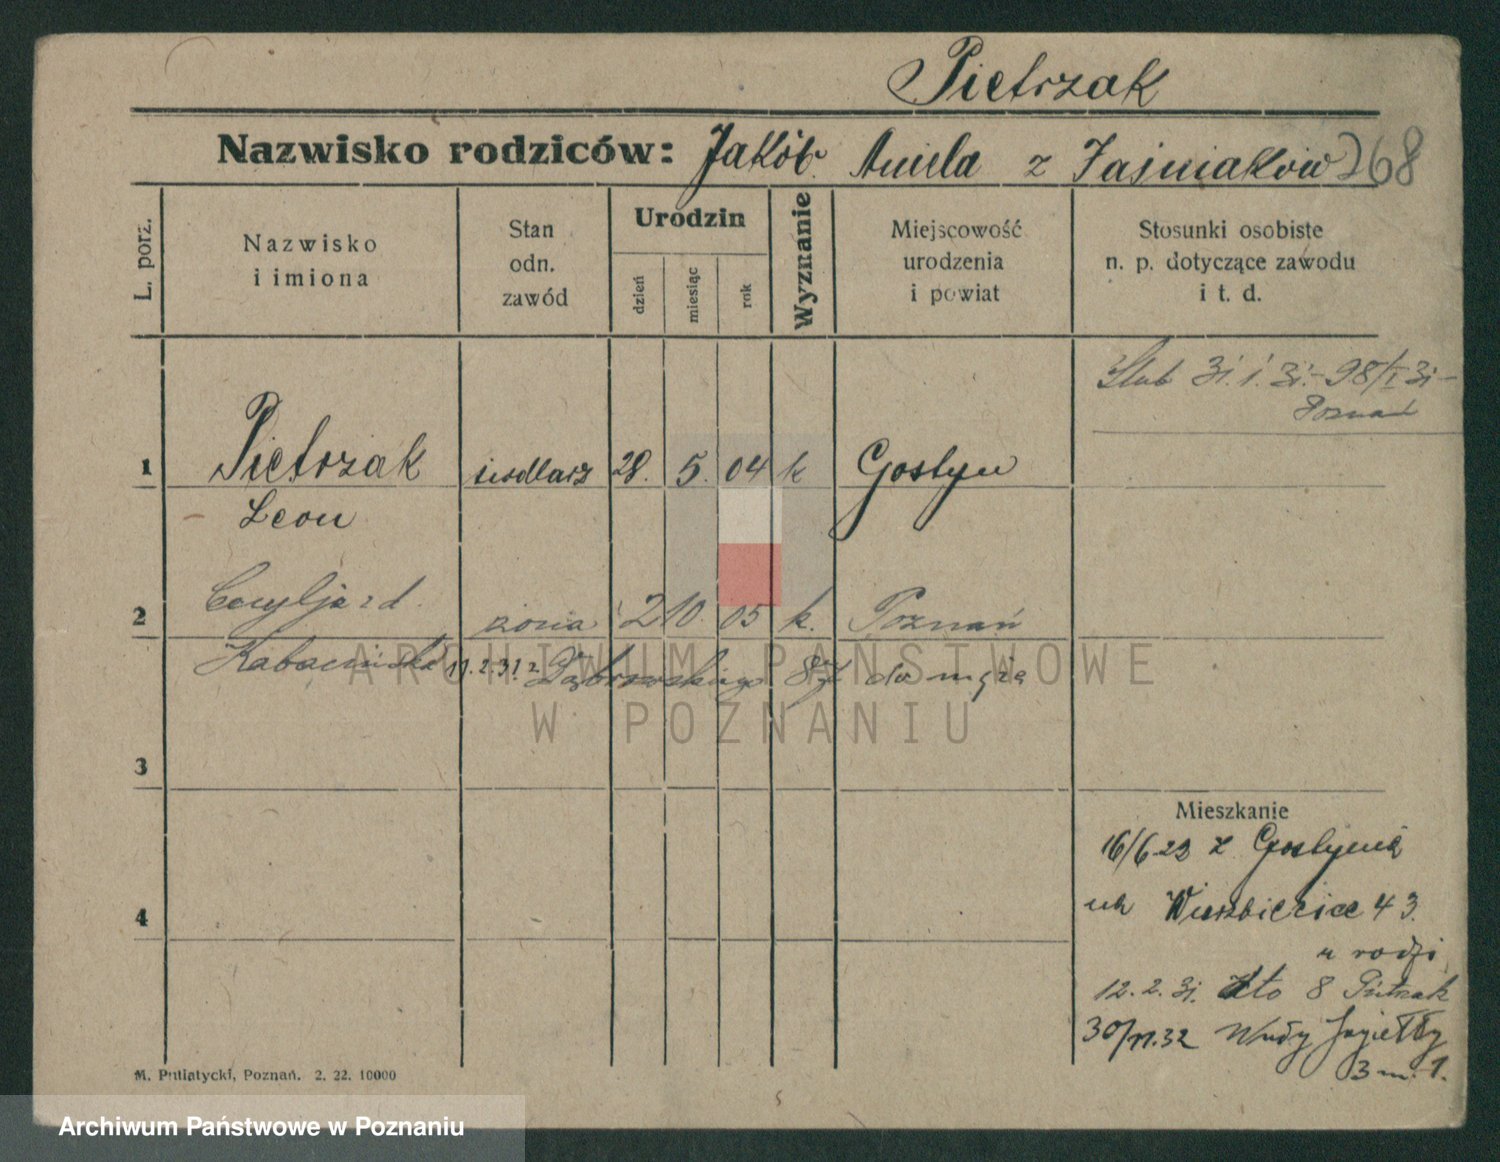 Pietrzak
Nazwisko rodziców: Jakób Aniela z Jaśniaków 268
L. porz.
Nazwisko i imiona
Stan odn. zawód
Urodzin
dzień miesiąc rok
Wyznanie
Miejscowość urodzenia i powiat
Stosunki osobiste n. p. dotyczące zawodu i t. d.
Ślub 31. 1. 31.- 98/I 31-
Poznań
1 Pietrzak siodlarz 28. 5. 04 k Gostyn
Leon
2 żona 2 10. 05 k. Poznań
Kabacińska 11.2.31. z Dąbrowskiego 87 do męża
3
4
Mieszkanie
16/6 23 z Gostynia
ul Wierzbięcice 43.
u rodzi
12. 2. 31. 8 Pietrzak
30/11.32 Jagiełły
3 m. 1.
M. Putiatycki, Poznań. 2. 22. 10000
ARCHIWUM PAŃSTWOWE
W POZNANIU
Archiwum Państwowe w Poznaniu